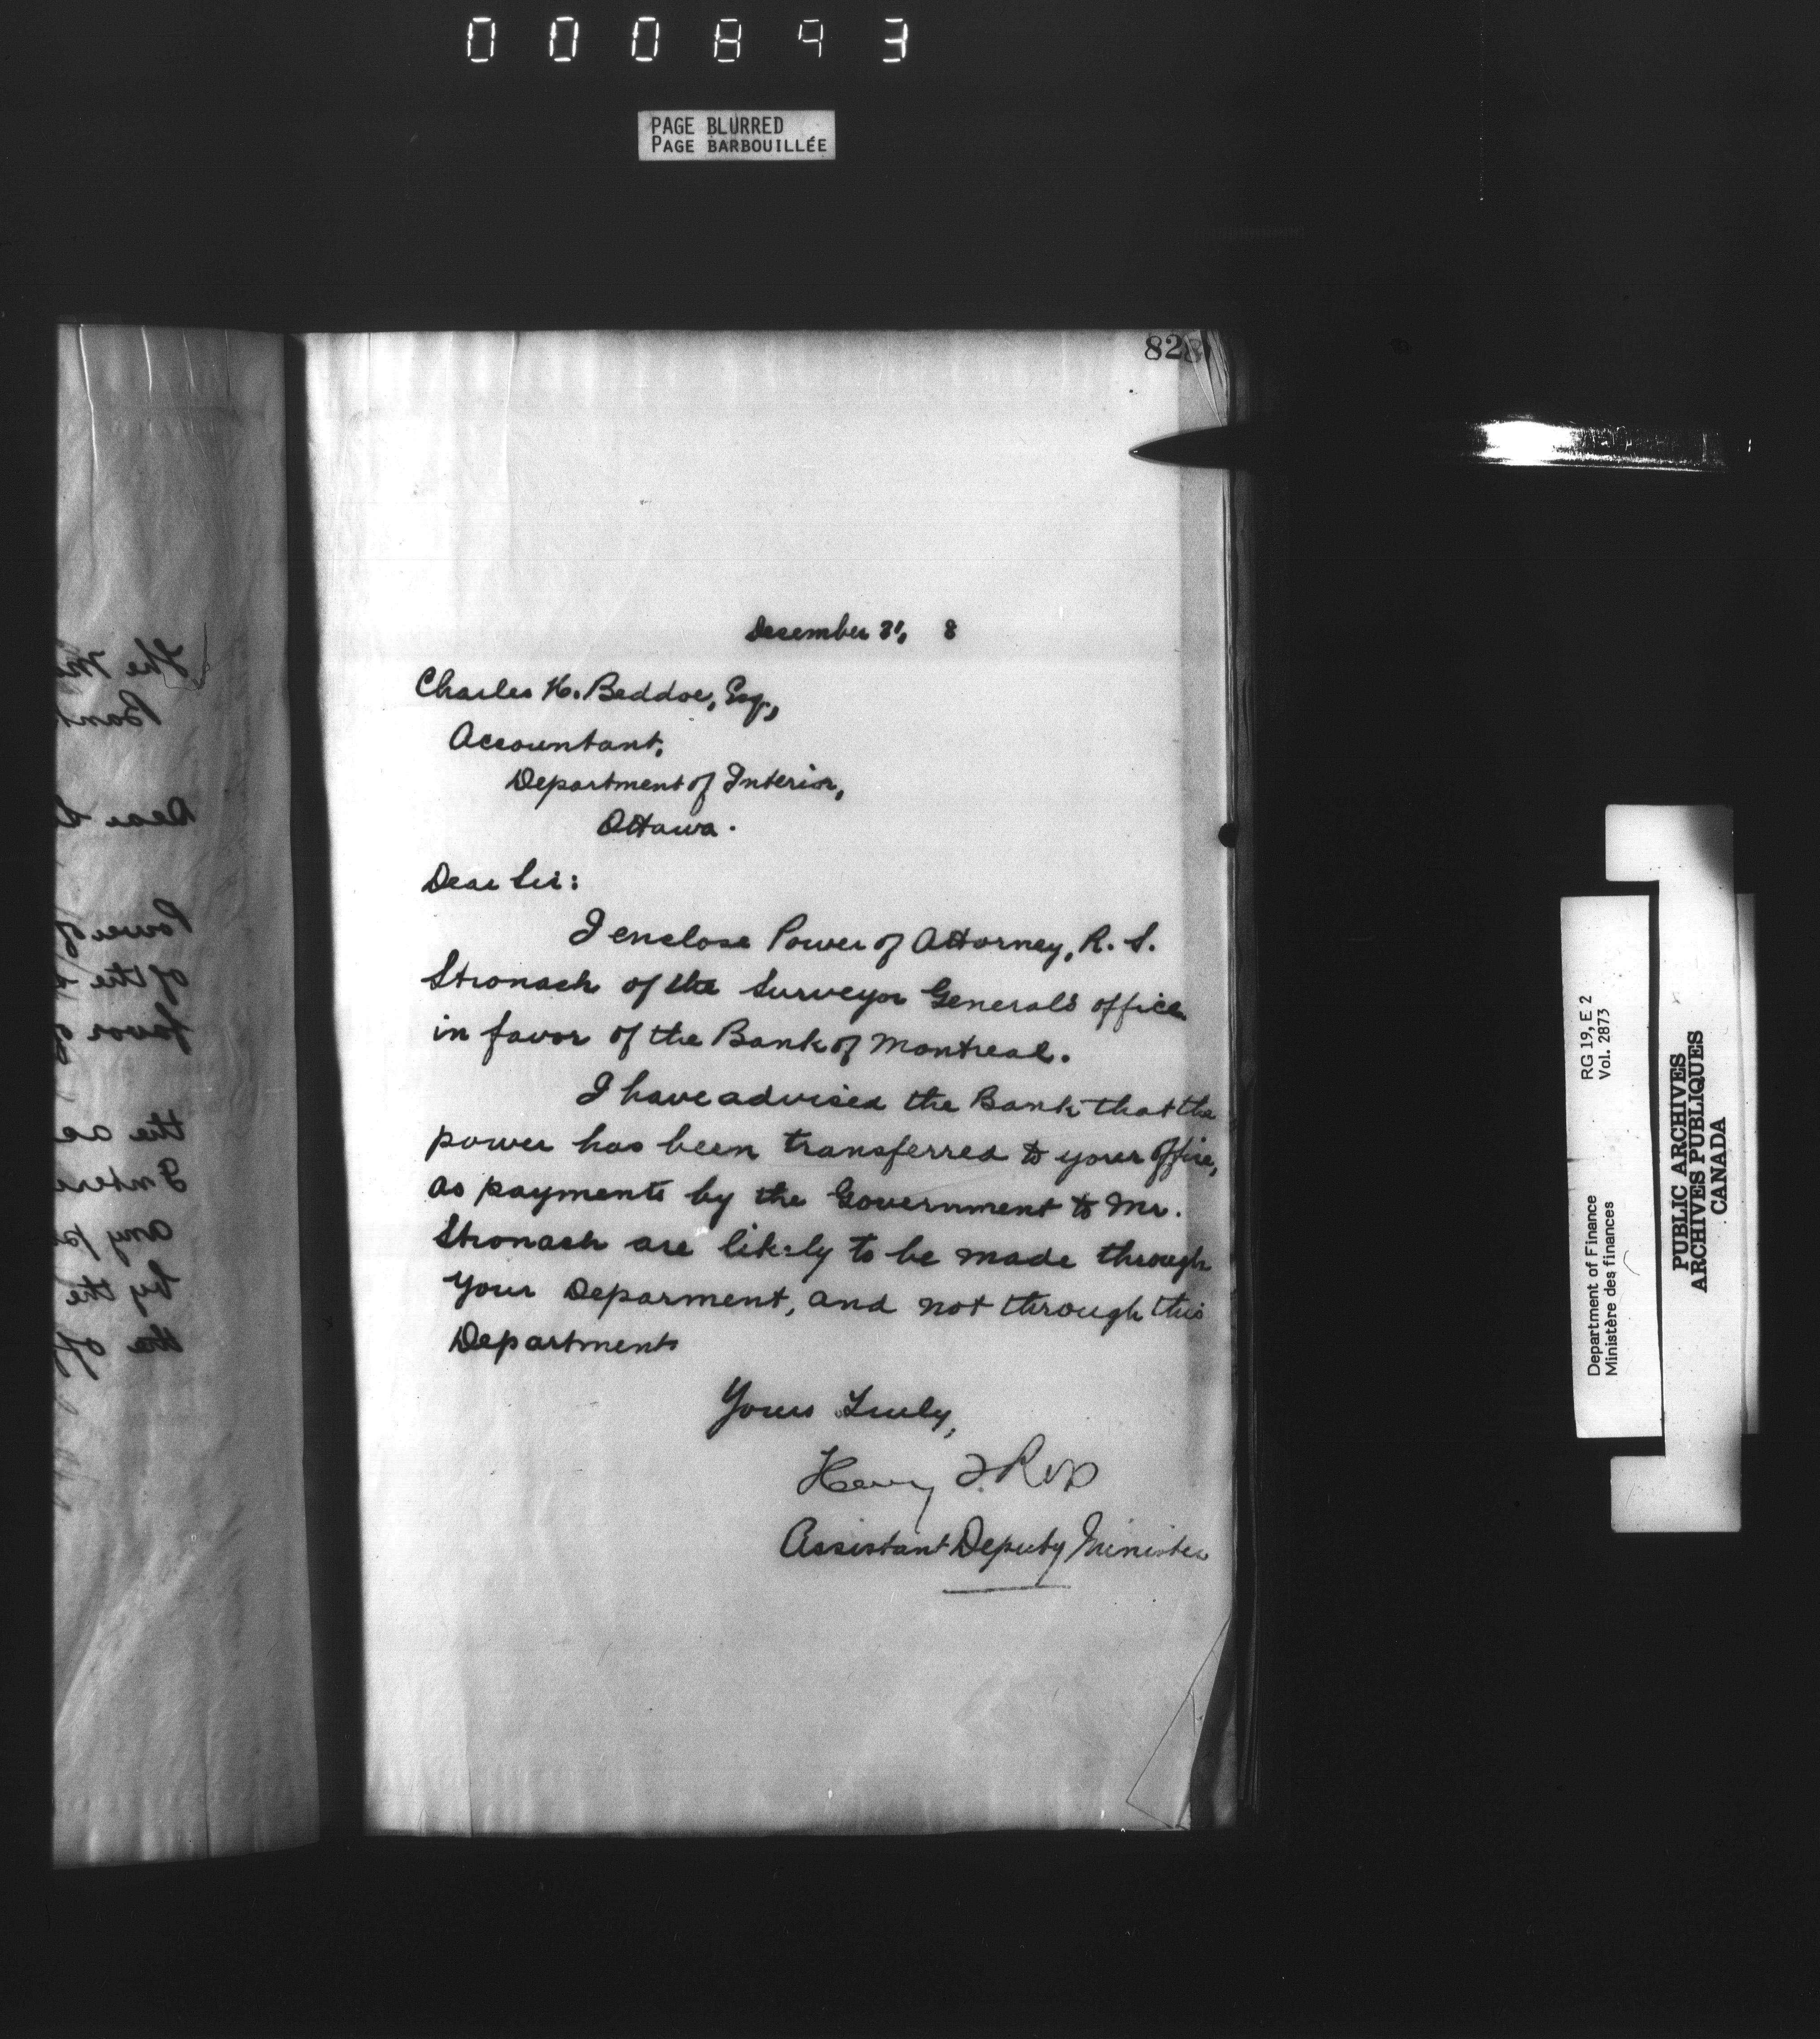 000843
PAGE BLURRED
PAGE BARBOUILLÉE
828
December 31, 8
Charles H. Beddoe, Esq.,
Accountant,
Department of Interior,
Ottawa.
Dear Sir:
I enclose Power of Attorney, R. S.
Stronach of the Surveyor General's office
in favor of the Bank of Montreal.
I have advised the Bank that the
power has been transferred to your office,
as payments by the Government to Mr.
Stronach are likely to be made through
your Deparment, and not through this
Department
Yours Truly,
Henry T. Ross
Assistant Deputy Minister
The M
Bank
Dear S
Power of
of the S
favor of
the ac
Interi
any pa
by the
the of
Department of Finance RG 19, E 2
Ministère des finances Vol. 2873
PUBLIC ARCHIVES
ARCHIVES PUBLIQUES
CANADA